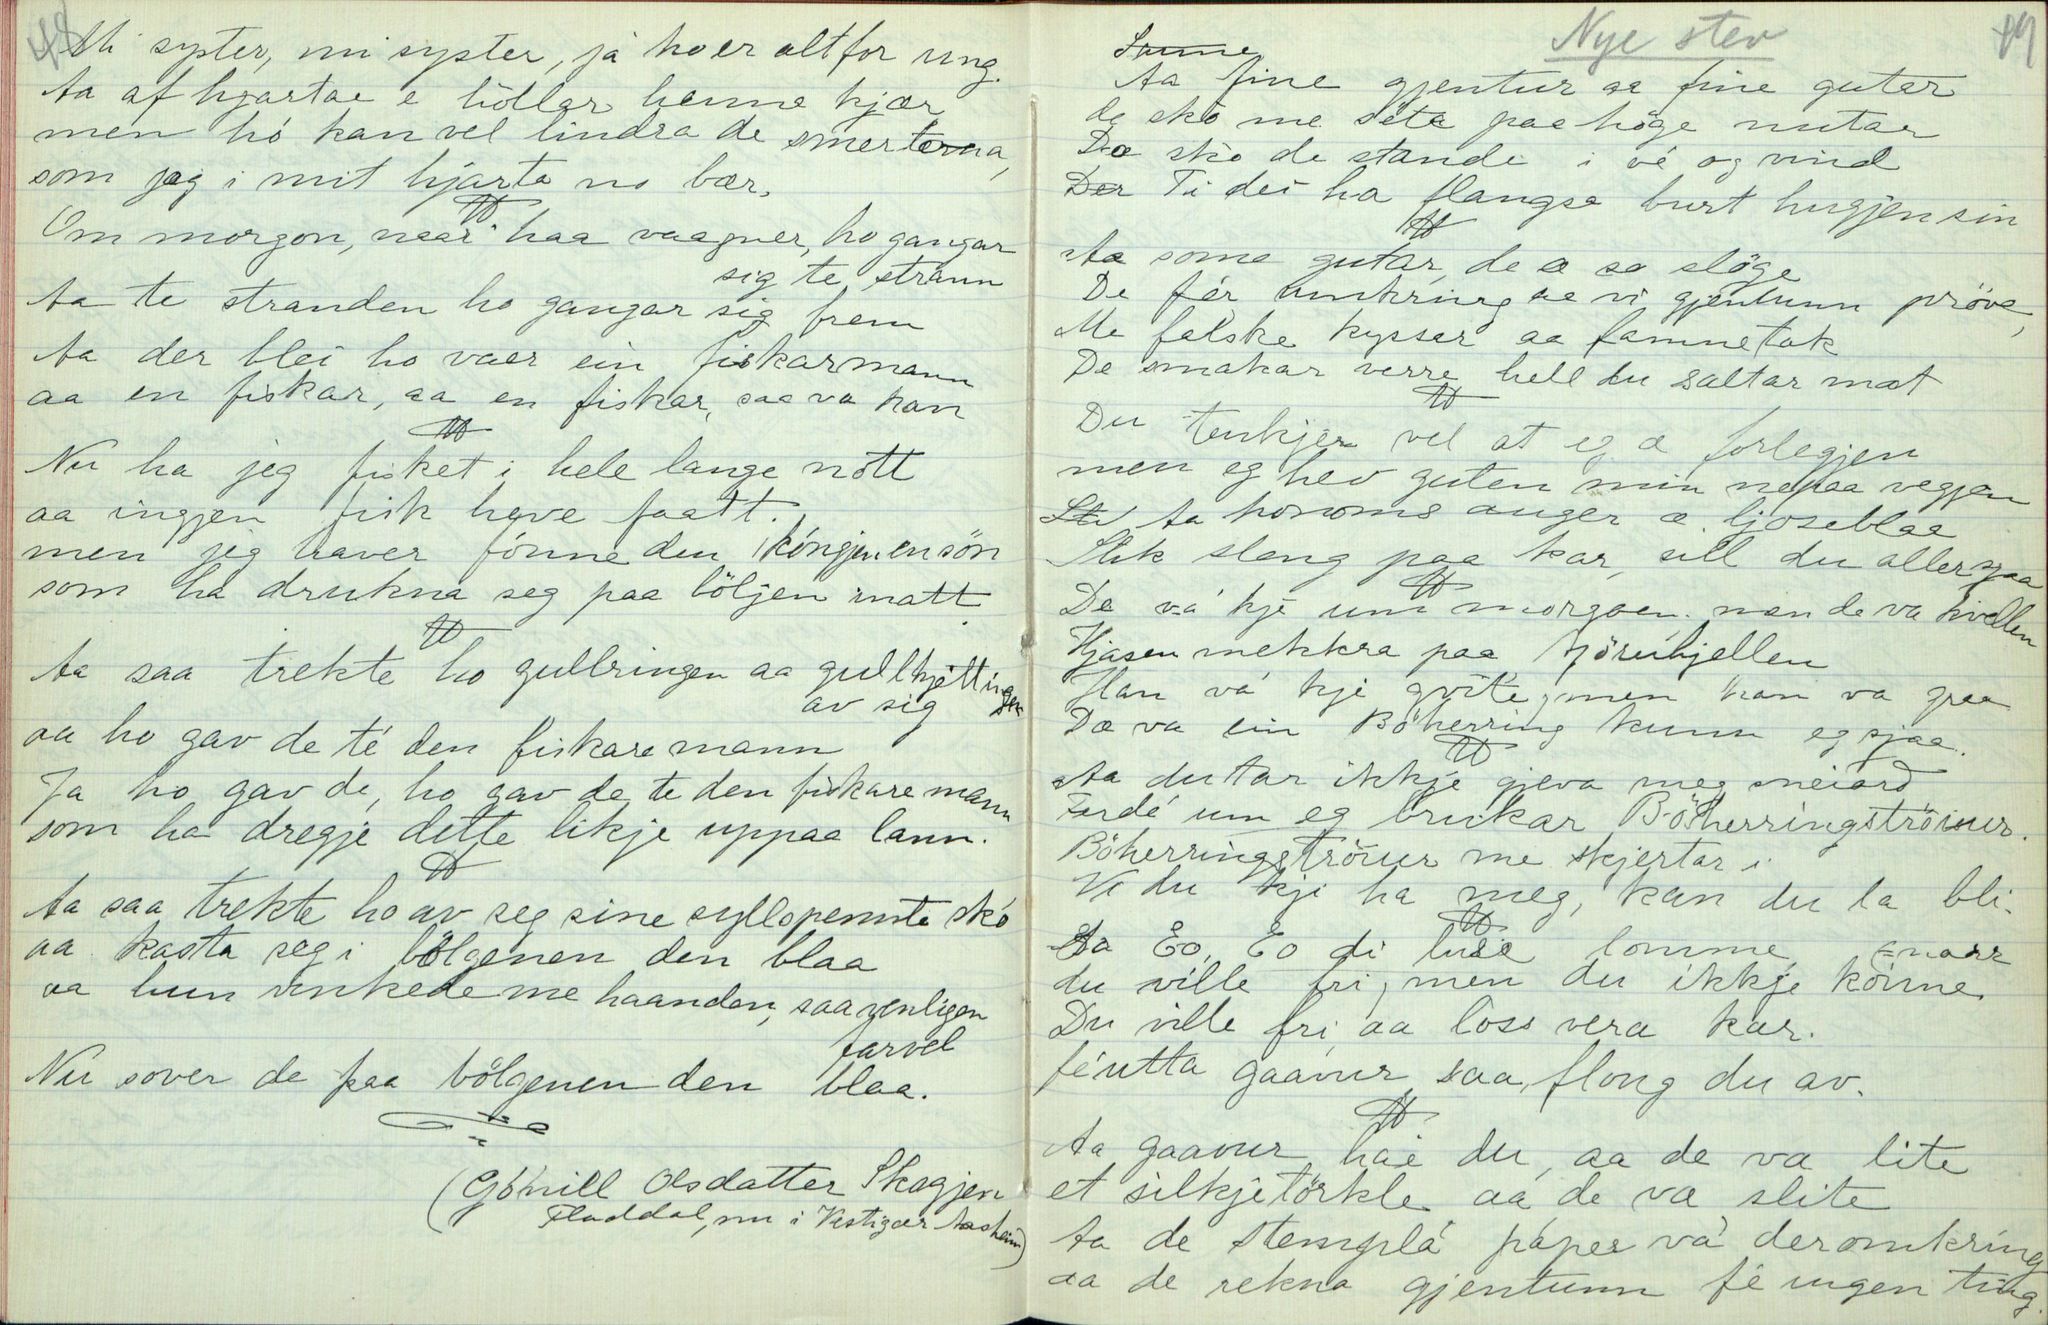 48
Mi syster, mi syster, já ho er alt for ung.
Aa af hjartae e höllar henne kjær
men hó kan vel lindra de smerterna,
som jeg i mit hjarta no bær.
Om morgon, naar haa vaagner, ho gangar
sig te straunn
Aa te stranden ho gangar sig frem
Aa der blei ho vaer ein fiskarmann
aa en fiskar, aa en fiskar, saa va han
Nu ha jeg fisket i hele lange nött
aa ingjen fisk heve faatt.
men jeg haver fónne den kóngjen en sön
som ha drukna seg paa böljen i natt.
Aa saa trekte ho gullringen aa gullkjéttingen
av sig
aa ho gav de té den fiskare mann
Ja ho gav de, ho gav de te den fiskare mann
som ha dregje dette likje uppaa lann.
Aa saa trekte ho av seg sine syllspennte skó
aa kasta seg i bölgenen den blaa
aa hun vinkede me haanden, saa venligen
farvel
Nu sover de paa bölgenen den blaa.
(Gónill Olsdatter Skogjen
Fladdal, nu i Vestigar Aasheim)
Nye stev
49
Somme
Aa fine gjentur aa fine gutar
de skó me séta paa höge nutar
Dæ skó de stande i vé og vind
Der Ti dei ha flangsa burt hugjen sin
Aa some gutar, de æ so slöge
De fér umkring aa vi gjentunn pröve,
Me falske kysser aa famnetak
De smakar verre hell du saltar mat
Du tenkjer vel at eg æ forlegjen
men eg hev guten min nepaa vegjen
Aa honoms auger æ ljoseblaa
Slik sleng paa kar, sill du aller sjaa
De vá kje um morgoen. men de va kvellen
Hjasen mekkra paa Njöruhjellen
Han vá kje gvite, men han va graa
Dæ va ein Böherring kunn eg sjaa.
Aa du tar ikkje gjeva meg sneiard
Fordé um eg brukar Böherringströiur.
Böherringströiur me skjertar i
Vi du kje ha meg, kan du la bli.
Aa Eo, Eo di luse lomme, naar
du ville fri, men du ikkje kóinne.
Du ville fri, aa loss vera kar.
féutta gaavur saa flong du av.
Aa gaavur háe du, aa de va lite
et silkjetörkle aá de va slite
Aa de stemplá páper vá deromkring
aa de rekna gjentunn fé ingen ting.